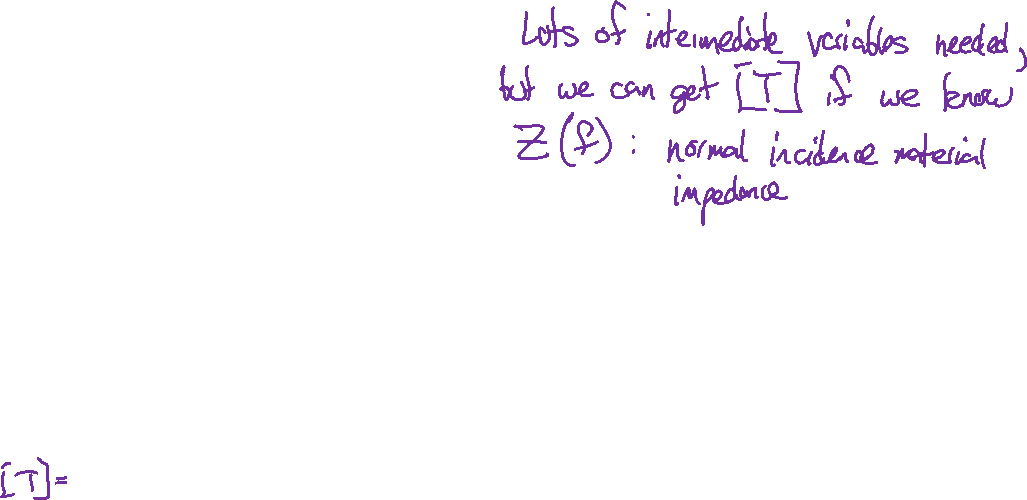 Lots of intermediate variables needed,
but we can get [T] if we know
Z(f): normal incidence material
impedance
[T]=